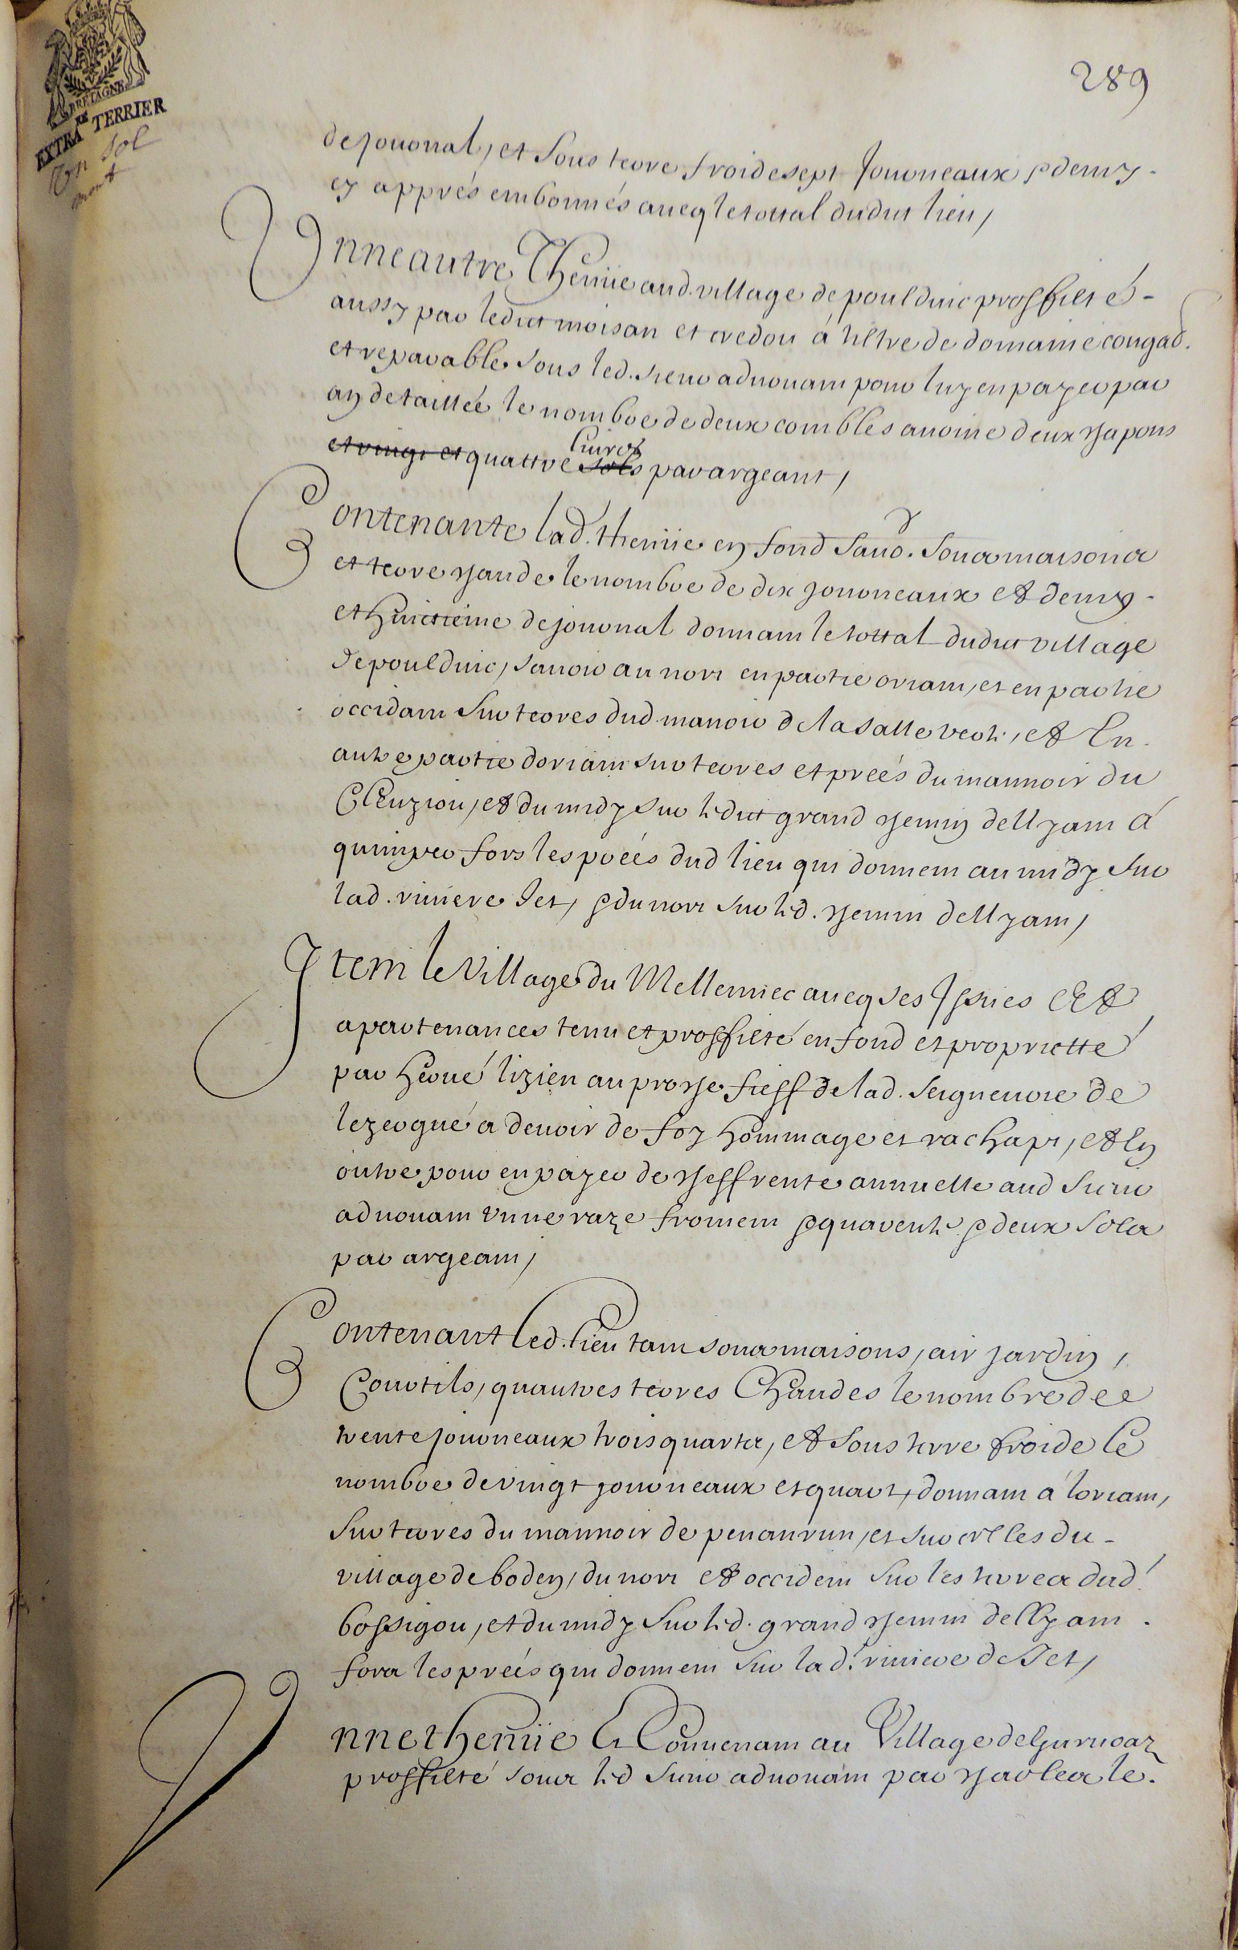 289
BRETAGNE
EXTRA DU TERRIER
Un sol
de jouonal, et sous terre froide sept jouoneaux & demy
cy apprés embonnés aucq le tottal dudut lieu,
Vnne autre Thenüe aud. village de poulduic proffité
aussy par ledict moisan et credou à tiltre de domaine congad.
et reparable sous led. sieur aduouant pour luy en payer par
an detaillée le nombre de deux combles auoine deux chapons
et vingt et quattre sols liures par argeant,
Contenante lad. thenüe en fond saud. sous maisons
et terre chaude le nombre de dix jouoneaux et demy
et huictieme de jouonal donnant le tottal dudict village
de poulduic, sauoir au nort en partie oriant, et en partie
occidant sur terres dud manoir de la salle vert, et En
autre partie doriant sur terres et preés du mannoir du
Cleuziou, et du midy sur ledict grand chemin dellyant a
quimper fors les preés dud lieu qui donnent au midy sur
lad. riuiere Jet, & du nort sur led. chemin dellyant,
Item le Village du Mellennec aucq ses Issues Et
apartenances tenu et proffité en fond et propriette
par heruè lizien au proche fieff de lad. seigneurie de
lezergué a deuoir de foy hommage et rachapt, et En
outre pour en payer de cheffrente annuelle aud sieur
aduouant vnne raze froment & quarente & deux sols
par argeant,
Contenant led. lieu tant sous maisons, air jardin,
Courtils, qu'autres terres Chaudes le nombre de
trente jouoneaux trois quarts, et sous terre froide le
nombre de vingt jouoneaux et quart, donnant à loriant,
sur terres du mannoir de penanrun, et sur celles du
village de boden, du nort et occident sur les terres dud.
bossigou, et du midy sur led. grand chemin dellyant
fors les preés qui donnent sur lad. riuiere de Jet,
Vnne thenüe Et Conuenant au Village de
proffité sous led sieur aduouant par charles le